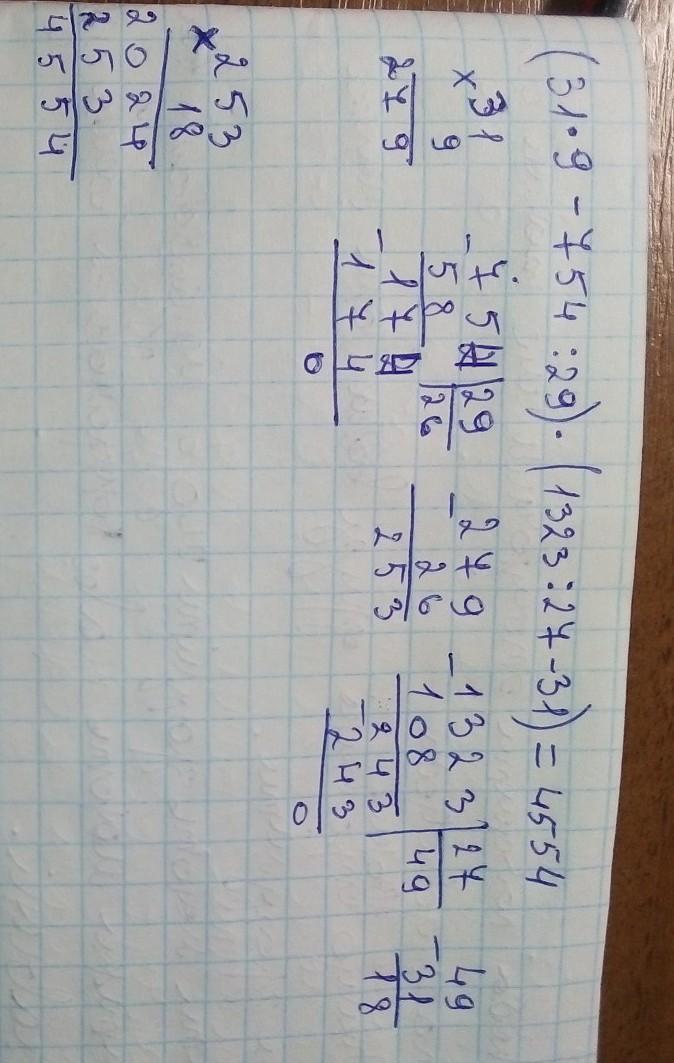 (31·9 - 754 :29)· (1323:27-31) = 4554
×31
9
279
-754 29
58 26
-174
174
0
-279
26
253
-1323 27
108 49
-243
243
0
-49
31
18
×253
18
2024
253
4554